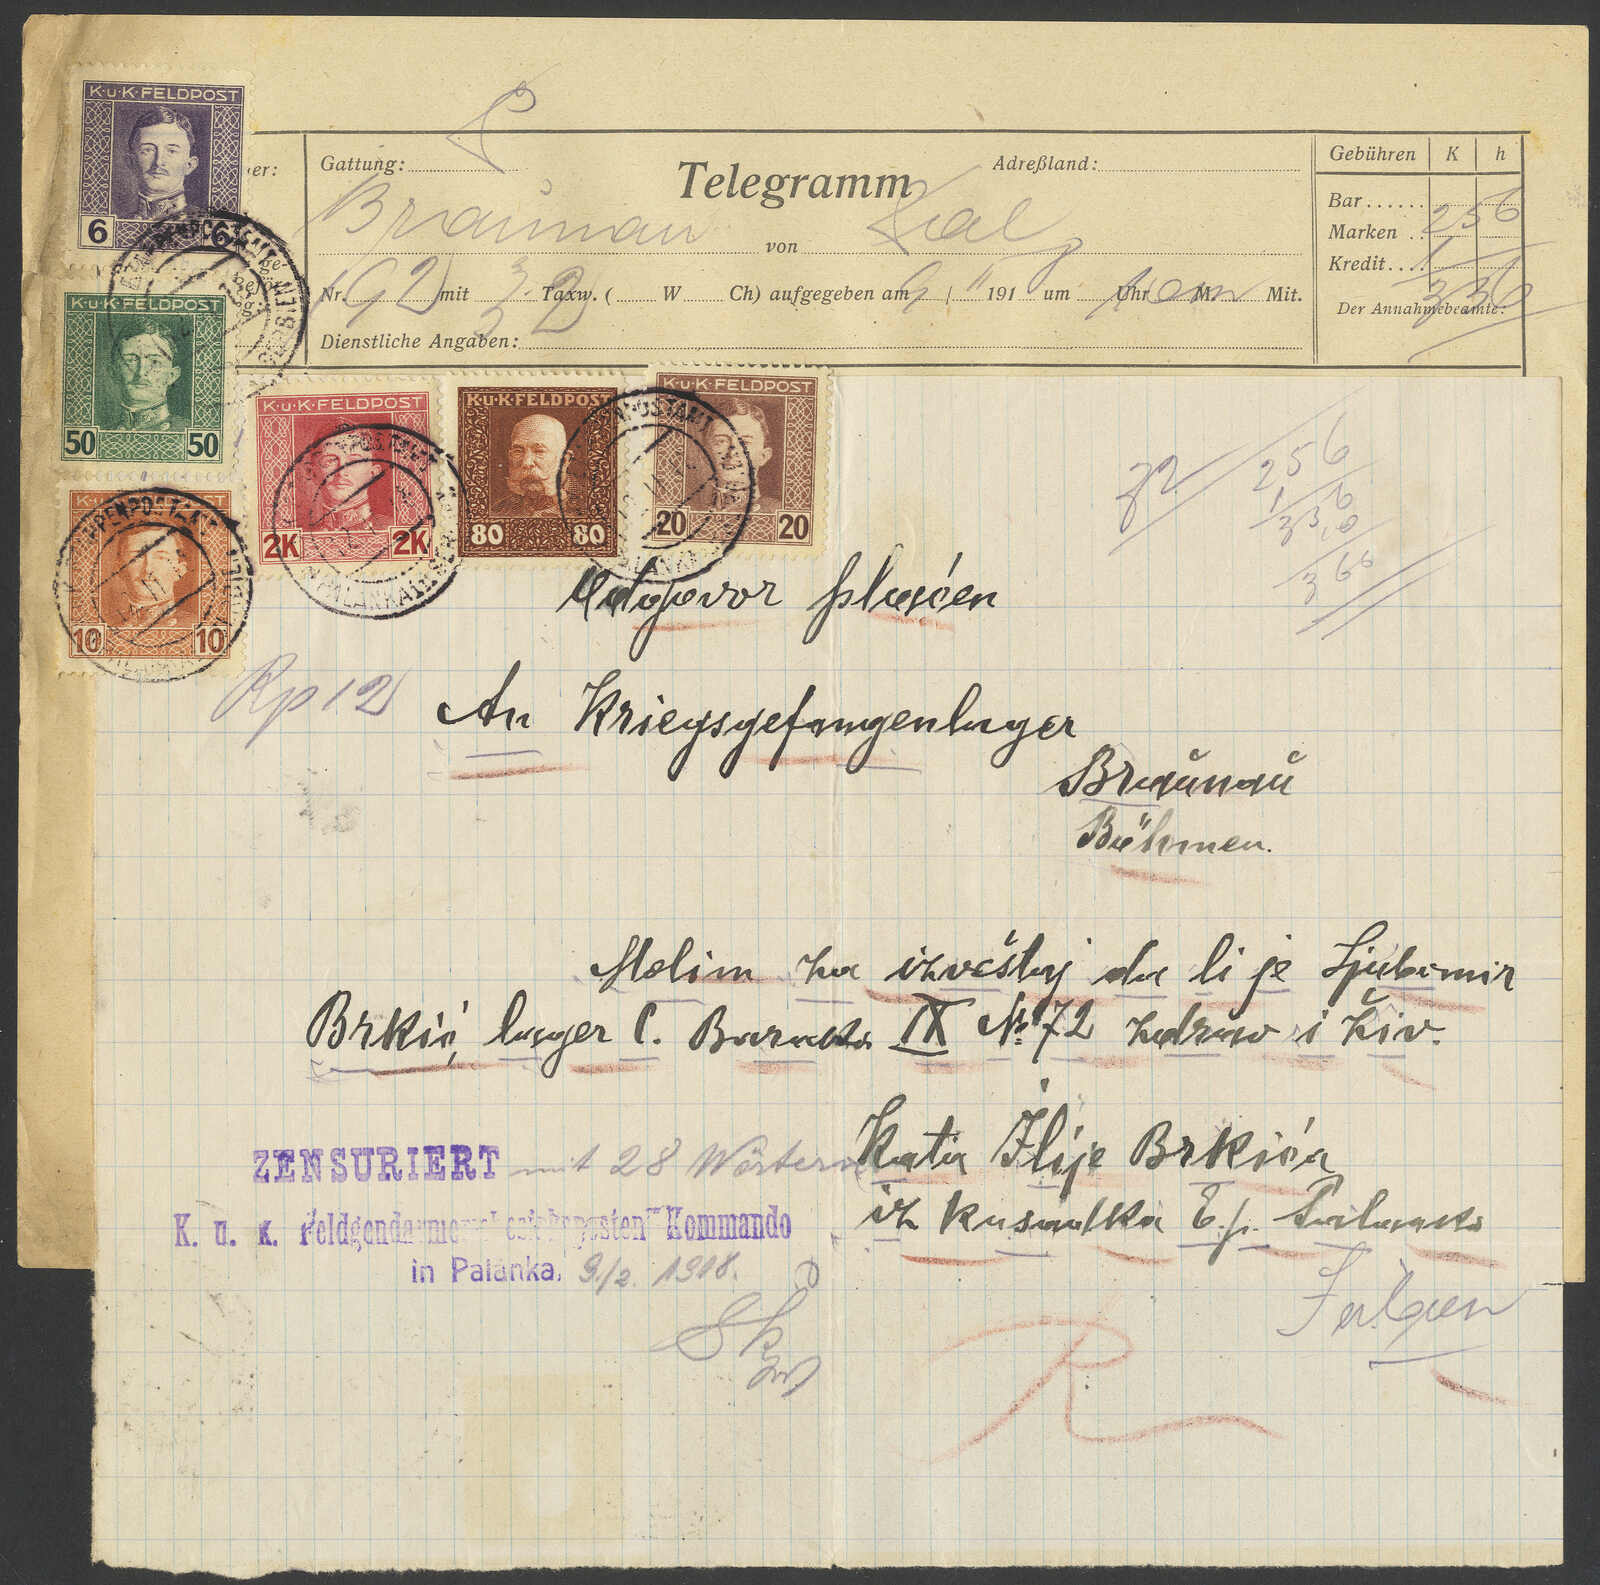 K·u·K·FELDPOST
6 6
K·u·K·FELDPOST
50 50
K·u·K
10 10
K·u·K·FELDPOST
2K 2K
K·u·K·FELDPOST
80 80
K·u·K·FELDPOST
20 20
Gattung:
Telegramm
Adreßland:
Braŭnau von
Nr. 92 mit 32 Taxw. ( W Ch) aufgegeben am 9 / II 191 um Uhr M Mit.
Dienstliche Angaben:
Gebühren K h
Bar......
Marken .. 2 56
Kredit.... 1
3 56
Der Annahmebeamte:
32
2 56
1
3 66
Odgovor plaćen
Rp 12
An Kriegsgefangenlager
Braŭnaŭ
Böhmen.
Molim za izveštaj da li je Ljubomir
Brkić, lager C. Baraka IX № 72 zdrav i živ.
Kata Ilije Brkića
iz Kusadka E.p. Palanka
ZENSURIERT mit 28 Wörtern
K. u. K. Feldgendarmerie Kommando
in Palanka, 9./2. 1918.
R